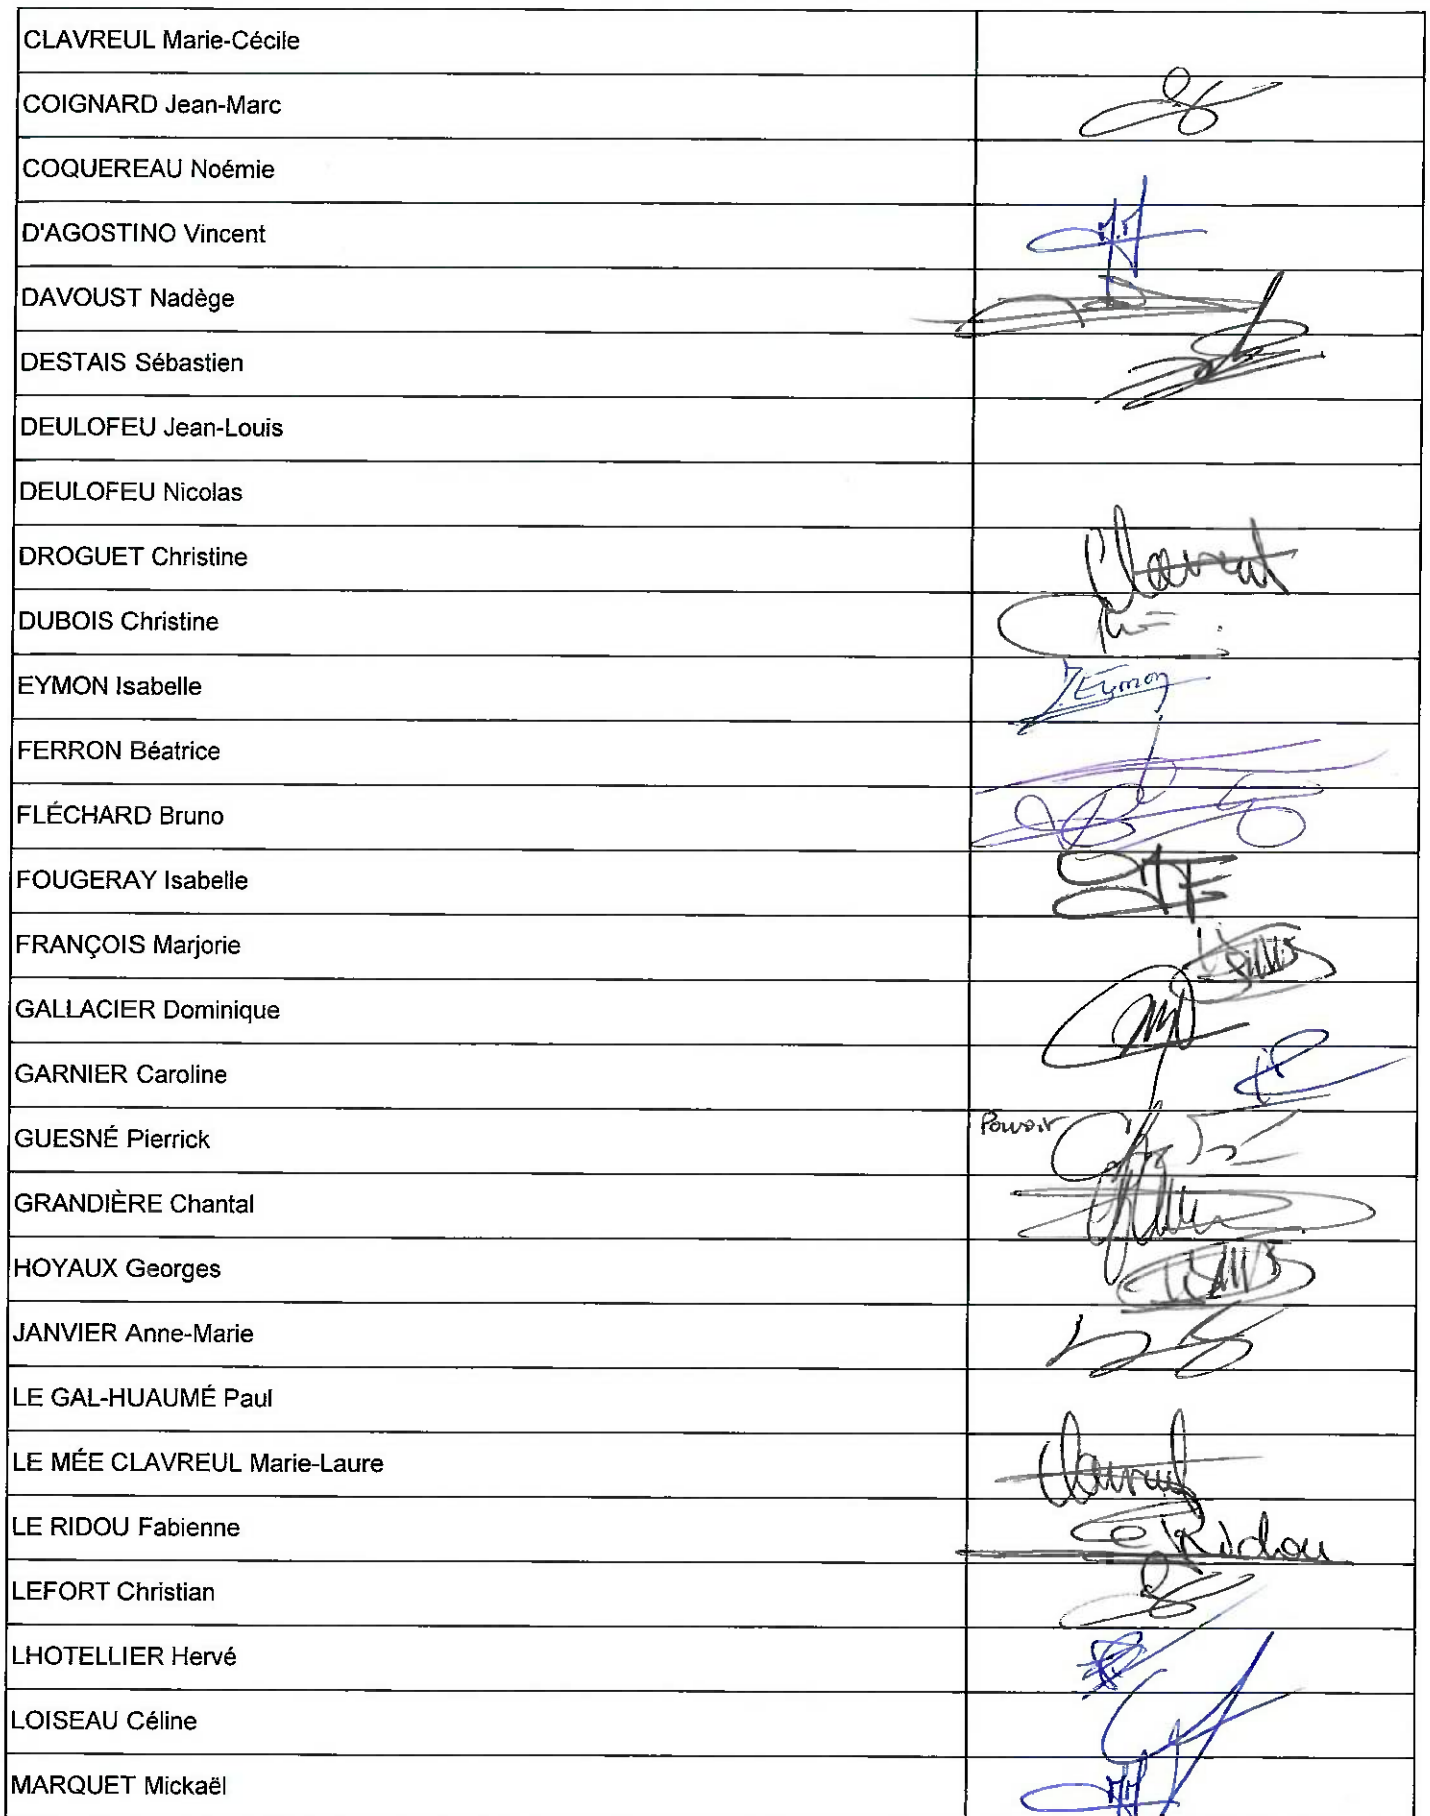 CLAVREUL Marie-Cécile
COIGNARD Jean-Marc
COQUEREAU Noémie
D'AGOSTINO Vincent
DAVOUST Nadège
DESTAIS Sébastien
DEULOFEU Jean-Louis
DEULOFEU Nicolas
DROGUET Christine
DUBOIS Christine
EYMON Isabelle Eymon
FERRON Béatrice
FLÉCHARD Bruno
FOUGERAY Isabelle
FRANÇOIS Marjorie
GALLACIER Dominique
GARNIER Caroline
GUESNÉ Pierrick Pouvoir
GRANDIÈRE Chantal
HOYAUX Georges
JANVIER Anne-Marie
LE GAL-HUAUMÉ Paul
LE MÉE CLAVREUL Marie-Laure
LE RIDOU Fabienne Ridou
LEFORT Christian
LHOTELLIER Hervé
LOISEAU Céline
MARQUET Mickaël